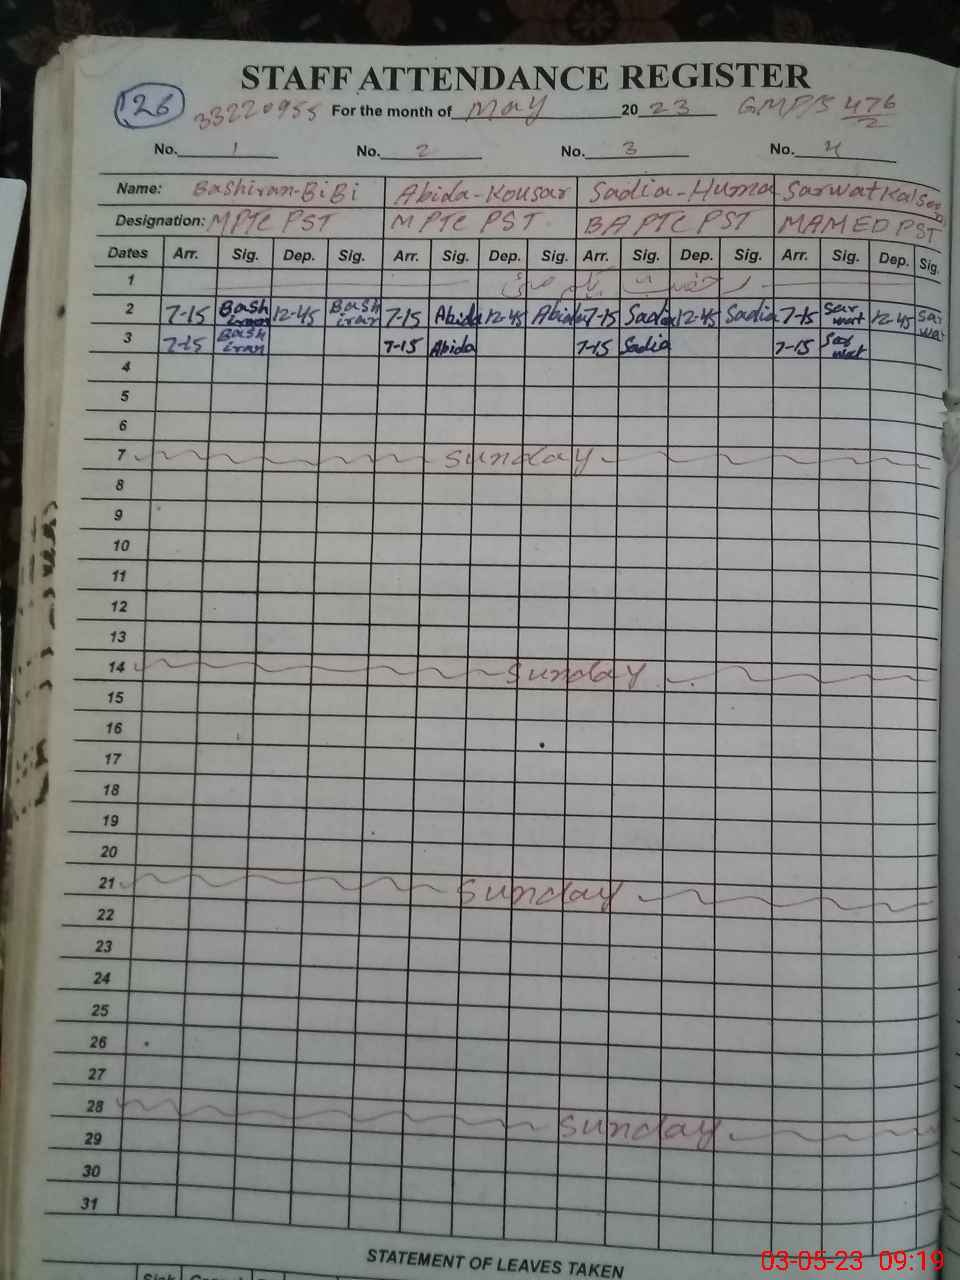 STAFF ATTENDANCE REGISTER
126 33220955 For the month of May 2023 GMP/S 476/2
No. 1 No. 2 No. 3 No. 4
Name: Bashiran-BiBi Abida-Kousar Sadia-Huma Sarwat Kalsoom
Designation: MPTC PST MPTC PST. BA PTC PST MAMED PST
Dates Arr. Sig. Dep. Sig. Arr. Sig. Dep. Sig. Arr. Sig. Dep. Sig. Arr. Sig. Dep. Sig.
1
2 7-15 Bashiran 12-45 Bashiran 7-15 Abida 12-45 Abida 7-15 Sadia 12-45 Sadia 7-15 Sarwat 12-45 Sarwat
3 7-15 Bashiran 7-15 Abida 7-15 Sadia 7-15 Sarwat
4
5
6
7 Sunday
8
9
10
11
12
13
14 Sunday
15
16
17
18
19
20
21 Sunday
22
23
24
25
26
27
28 Sunday
29
30
31
STATEMENT OF LEAVES TAKEN
03-05-23 09:19